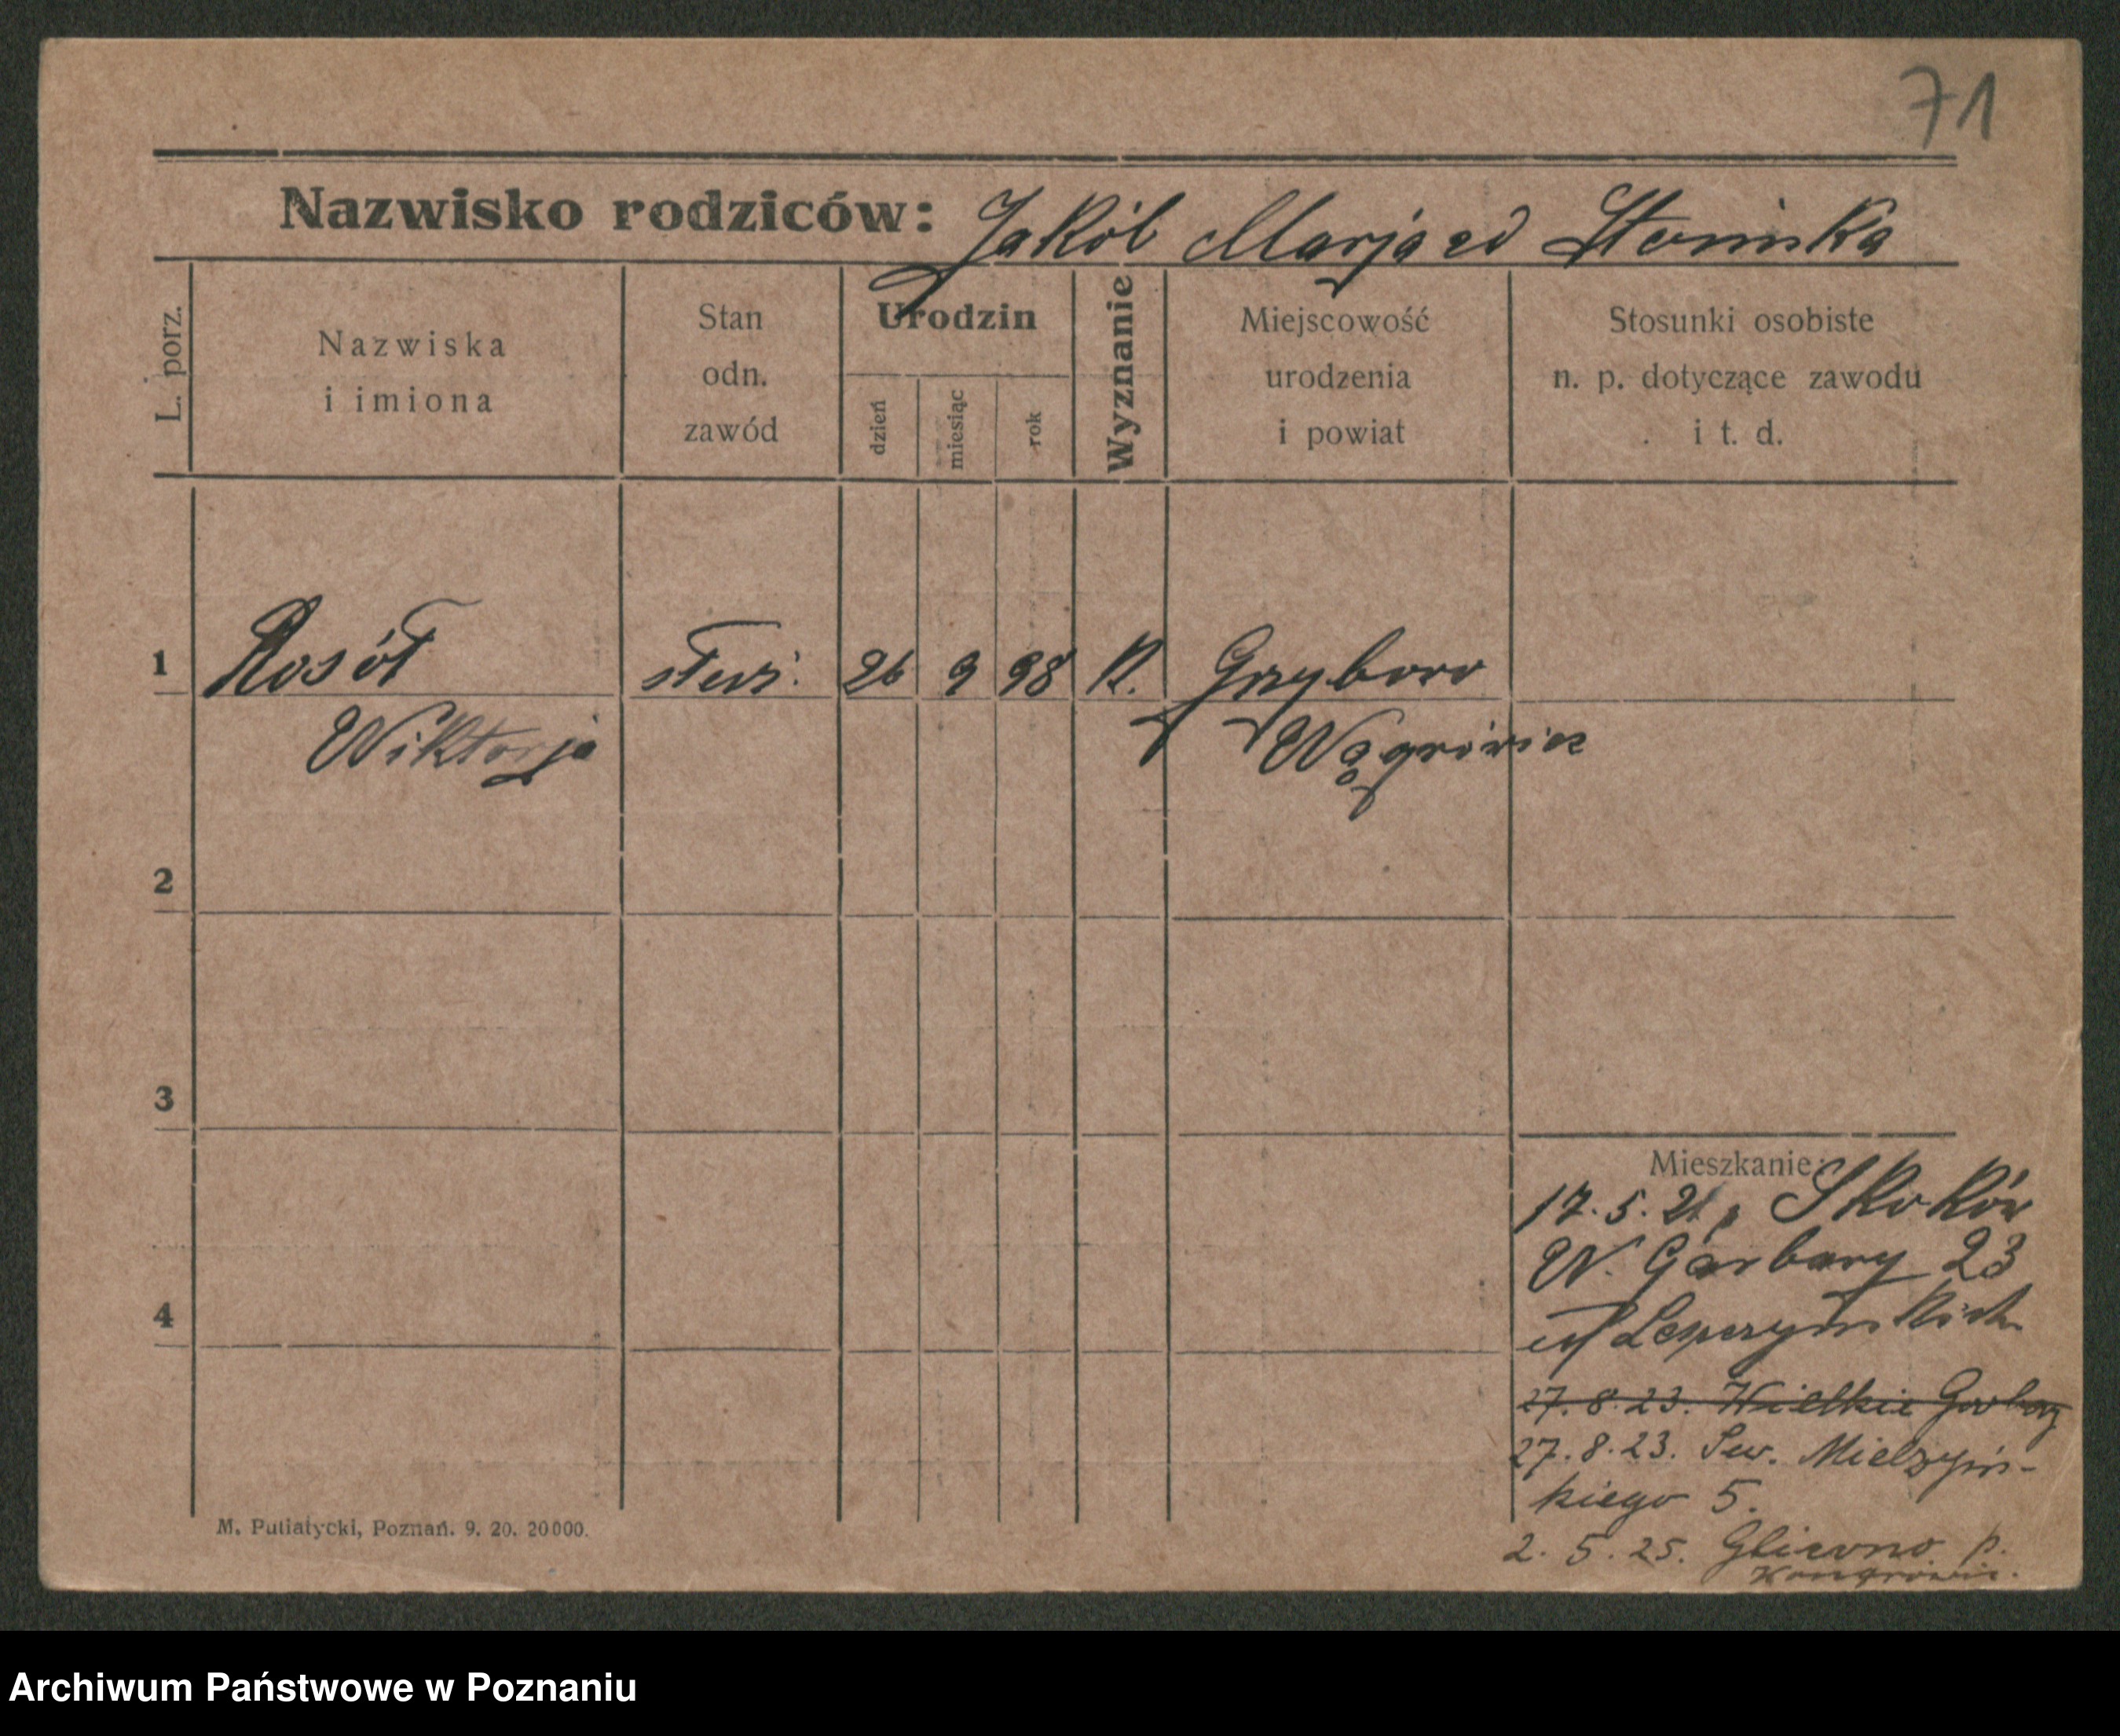 71
Nazwisko rodziców: Jakób Marja zd Słomińska
L. porz.
Nazwiska
i imiona
Stan
odn.
zawód
Urodzin
dzień
miesiąc
rok
Wyznanie
Miejscowość
urodzenia
i powiat
Stosunki osobiste
n. p. dotyczące zawodu
i t. d.
1 Rosół służ. 26 9 98 K. Grzybowo
Wiktorja Wągrówiec
2
3
4
Mieszkanie:
17. 5. 21 Skoków
W. Garbary 23
27. 8. 23. Wielkie Garbary
27. 8. 23. Sew. Mielżyń-
kiego 5.
2. 5. 25. p.
M. Putiatycki, Poznań. 9. 20. 20000.
Archiwum Państwowe w Poznaniu